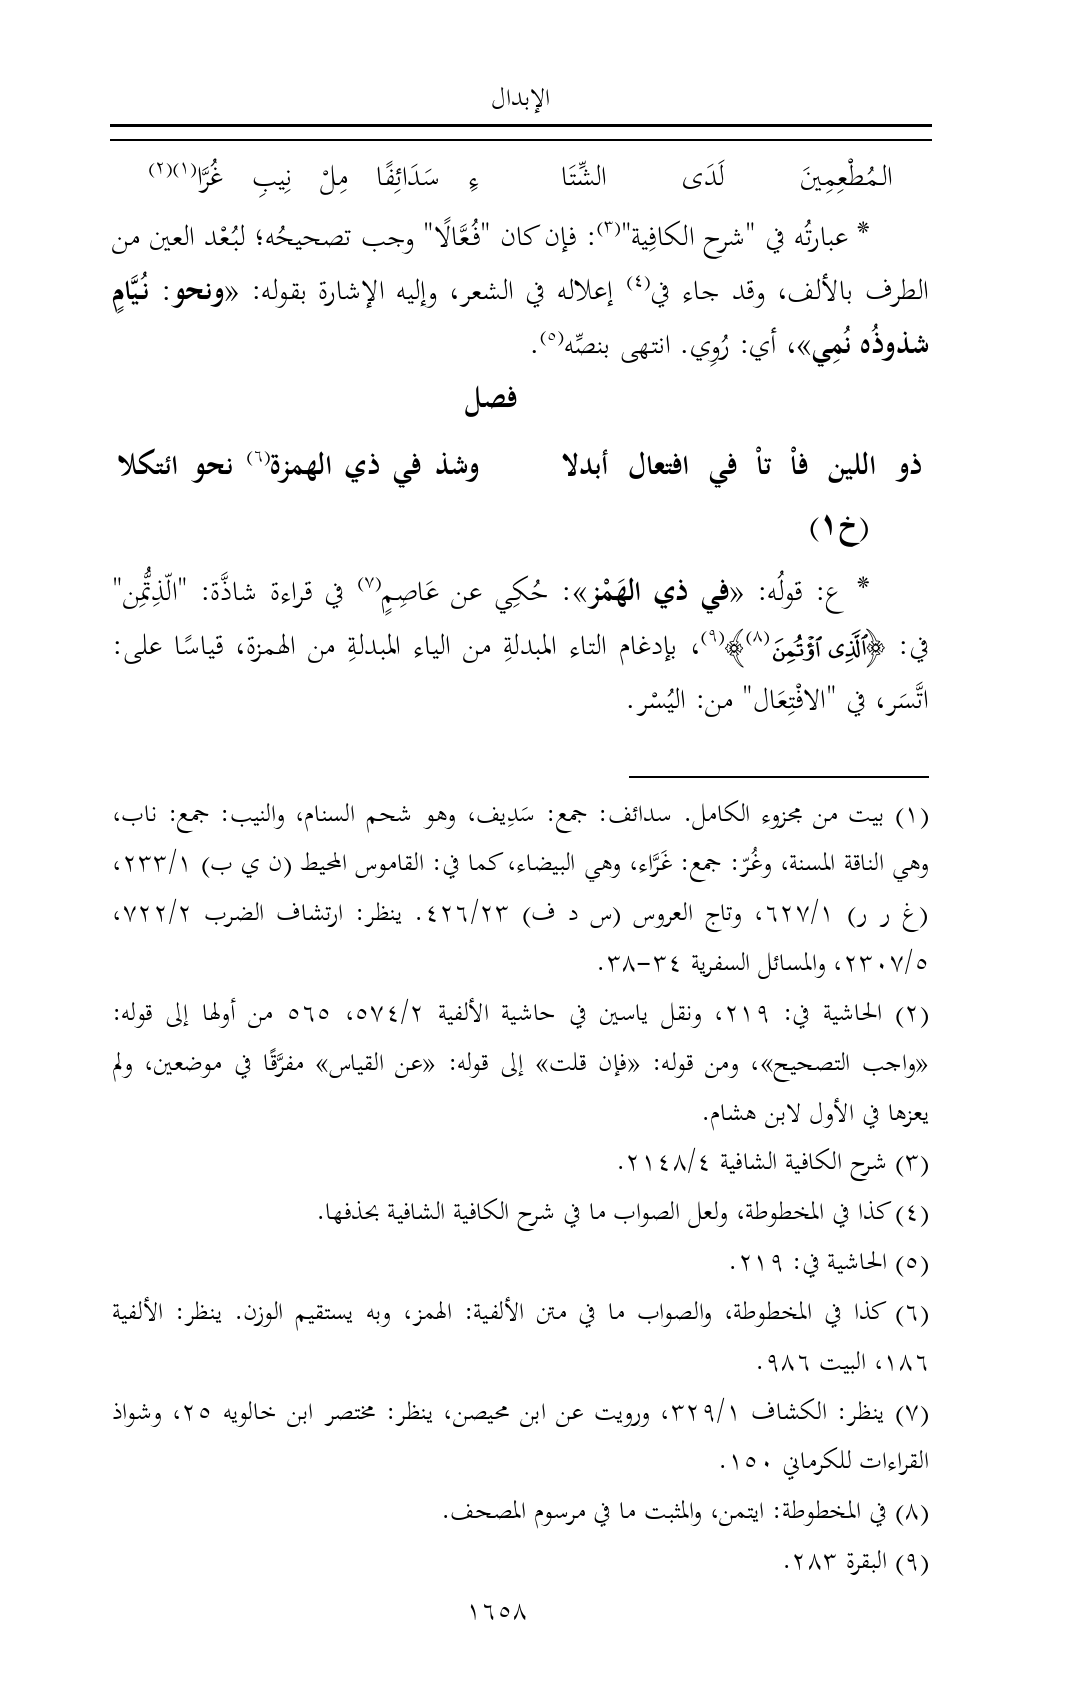 الإبدال
المُطْعِمِينَ لَدَى الشِّتَا ءِ سَدَائِفًا مِلْ نِيبِ غُرَّا(١)(٢)
* عبارتُه في "شرح الكافِية"(٣): فإن كان "فُعَّالًا" وجب تصحيحُه؛ لبُعْد العين من
الطرف بالألف، وقد جاء في(٤) إعلاله في الشعر، وإليه الإشارة بقوله: «ونحو: نُيَّامٍ
شذوذُه نُمِي»، أي: رُوِي. انتهى بنصِّه(٥).
فصل
ذو اللين فاْ تاْ في افتعال أبدلا وشذ في ذي الهمزة(٦) نحو ائتكلا
(خ١)
* ع: قولُه: «في ذي الهَمْز»: حُكِي عن عَاصِمٍ(٧) في قراءة شاذَّة: "الّذِتُّمِن"
في: ﴿ٱلَّذِى ٱؤۡتُمِنَ(٨)﴾(٩)، بإدغام التاء المبدلةِ من الياء المبدلةِ من الهمزة، قياسًا على:
اتَّسَر، في "الافْتِعَال" من: اليُسْر.
(١) بيت من مجزوء الكامل. سدائف: جمع: سَدِيف، وهو شحم السنام، والنيب: جمع: ناب،
وهي الناقة المسنة، وغُرّ: جمع: غَرَّاء، وهي البيضاء، كما في: القاموس المحيط (ن ي ب) ٢٣٣/١،
(غ ر ر) ٦٢٧/١، وتاج العروس (س د ف) ٤٢٦/٢٣. ينظر: ارتشاف الضرب ٧٢٢/٢،
٢٣٠٧/٥، والمسائل السفرية ٣٤-٣٨.
(٢) الحاشية في: ٢١٩، ونقل ياسين في حاشية الألفية ٥٧٤/٢، ٥٦٥ من أولها إلى قوله:
«واجب التصحيح»، ومن قوله: «فإن قلت» إلى قوله: «عن القياس» مفرَّقًا في موضعين، ولم
يعزها في الأول لابن هشام.
(٣) شرح الكافية الشافية ٢١٤٨/٤.
(٤) كذا في المخطوطة، ولعل الصواب ما في شرح الكافية الشافية بحذفها.
(٥) الحاشية في: ٢١٩.
(٦) كذا في المخطوطة، والصواب ما في متن الألفية: الهمز، وبه يستقيم الوزن. ينظر: الألفية
١٨٦، البيت ٩٨٦.
(٧) ينظر: الكشاف ٣٢٩/١، ورويت عن ابن محيصن، ينظر: مختصر ابن خالويه ٢٥، وشواذ
القراءات للكرماني ١٥٠.
(٨) في المخطوطة: ايتمن، والمثبت ما في مرسوم المصحف.
(٩) البقرة ٢٨٣.
١٦٥٨